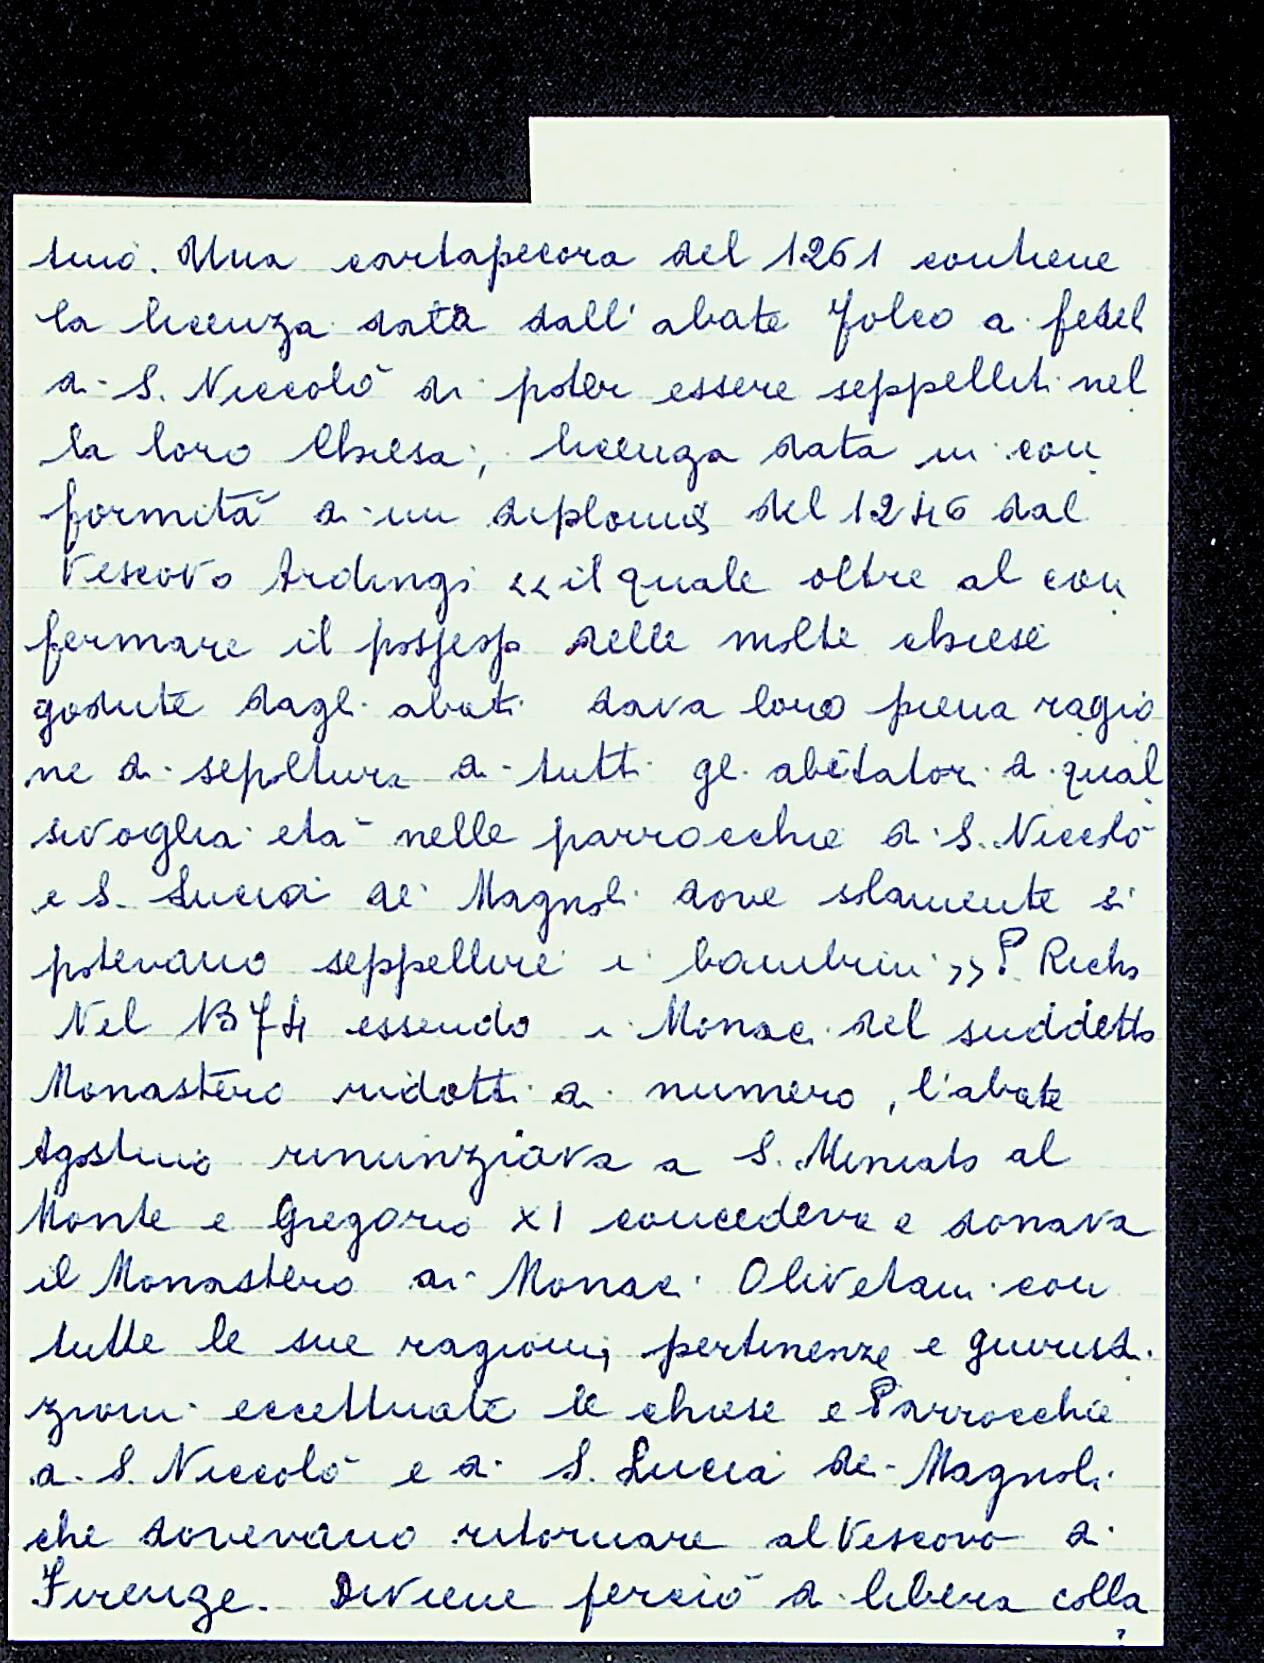 tino. Una cartapecora del 1261 contiene
la licenza data dall'abate Folco a fedel
di S. Niccolò di poter essere seppelliti nel
la loro Chiesa; licenza data in con
formità di un diploma del 1246 dal
Vescovo Ardingi << il quale oltre al con
fermare il possesso delle molte chiese
godute dagli abati dava loro piena ragio
ne di sepoltura di tutti gli abitatori di qual
sivoglia età nelle parrocchie di S. Niccolò
e S. Lucia de' Magnoli dove solamente si
potevano seppellire i bambini >> P. Richa
Nel 1374 essendo i Monaci del suddetto
Monastero ridotti di numero, l'abate
Agostino rinunziava a S. Miniato al
Monte e Gregorio XI concedeva e donava
il Monastero ai Monaci Olivetani con
tutte le sue ragioni, pertinenze e giurisdi
zioni eccettuate le chiese e Parrocchie
di S. Niccolò e di S. Lucia de' Magnoli
che dovevano ritornare al Vescovo di
Firenze. Diviene perciò di libera colla